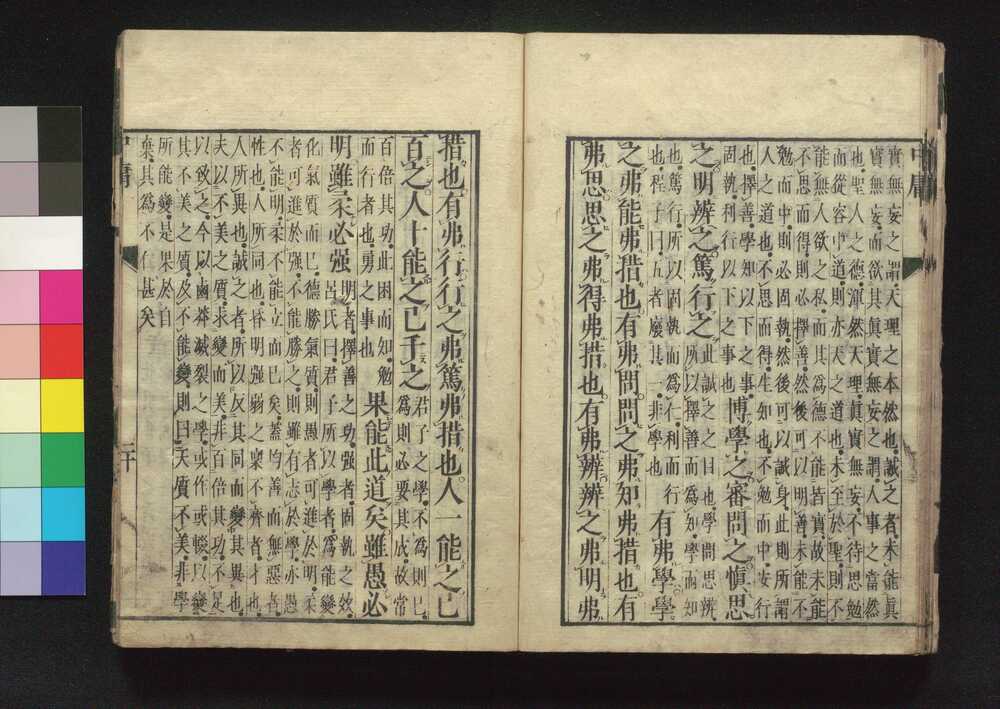 中庸
實無妄之謂天理之本然也誠之者未能眞
實無妄而欲其眞實無妄之謂人事之當然
也聖人之德渾然天理眞實無妄不待思勉
而從容中道則亦天之道也未至於聖則不
能無人欲之私而其為德不能皆實故未能
不思而得則必擇善然後可以明善未能不
勉而中則必固執然後可以誠身此則所謂
人之道也不思而得生知也不勉而中安行
也擇善學知以下之事
固執利行以下之事也
博學之審問之愼思
之明辨之篤行之
此誠之之目也學問思辨
所以擇善而為知學而知
也篤行所以固執而為仁利而行
也程子曰五者廢其一非學也
有弗學學
之弗能弗措也有弗問問之弗知弗措也有
弗思思之弗得弗措也有弗辨辨之弗明弗
措也有弗行行之弗篤弗措也人一能之已
百之人十能之已千之
君子之學不為則已
為則必要其成故常
百倍其功此困而知勉
而行者也勇之事也
果能此道矣雖愚必
明雖柔必强
明者擇善之功强者固執之效
呂氏曰君子所以學者為能變
化氣質而已德勝氣質則愚者可進於明柔
者可進於强不能勝之則雖有志於學亦愚
不能明柔不能立而已矣蓋均善而無惡者
性也人所同也昏明强弱之稟不齊者才也
人所異也誠之者所以反其同而變其異也
夫以不美之質求變而美非百倍其功不足
以致之今以鹵莽滅裂之學或作或輟以變
其不美之質及不能變則曰天質不美非學
所能變是果於自
棄其為不仁甚矣
中庸
二十